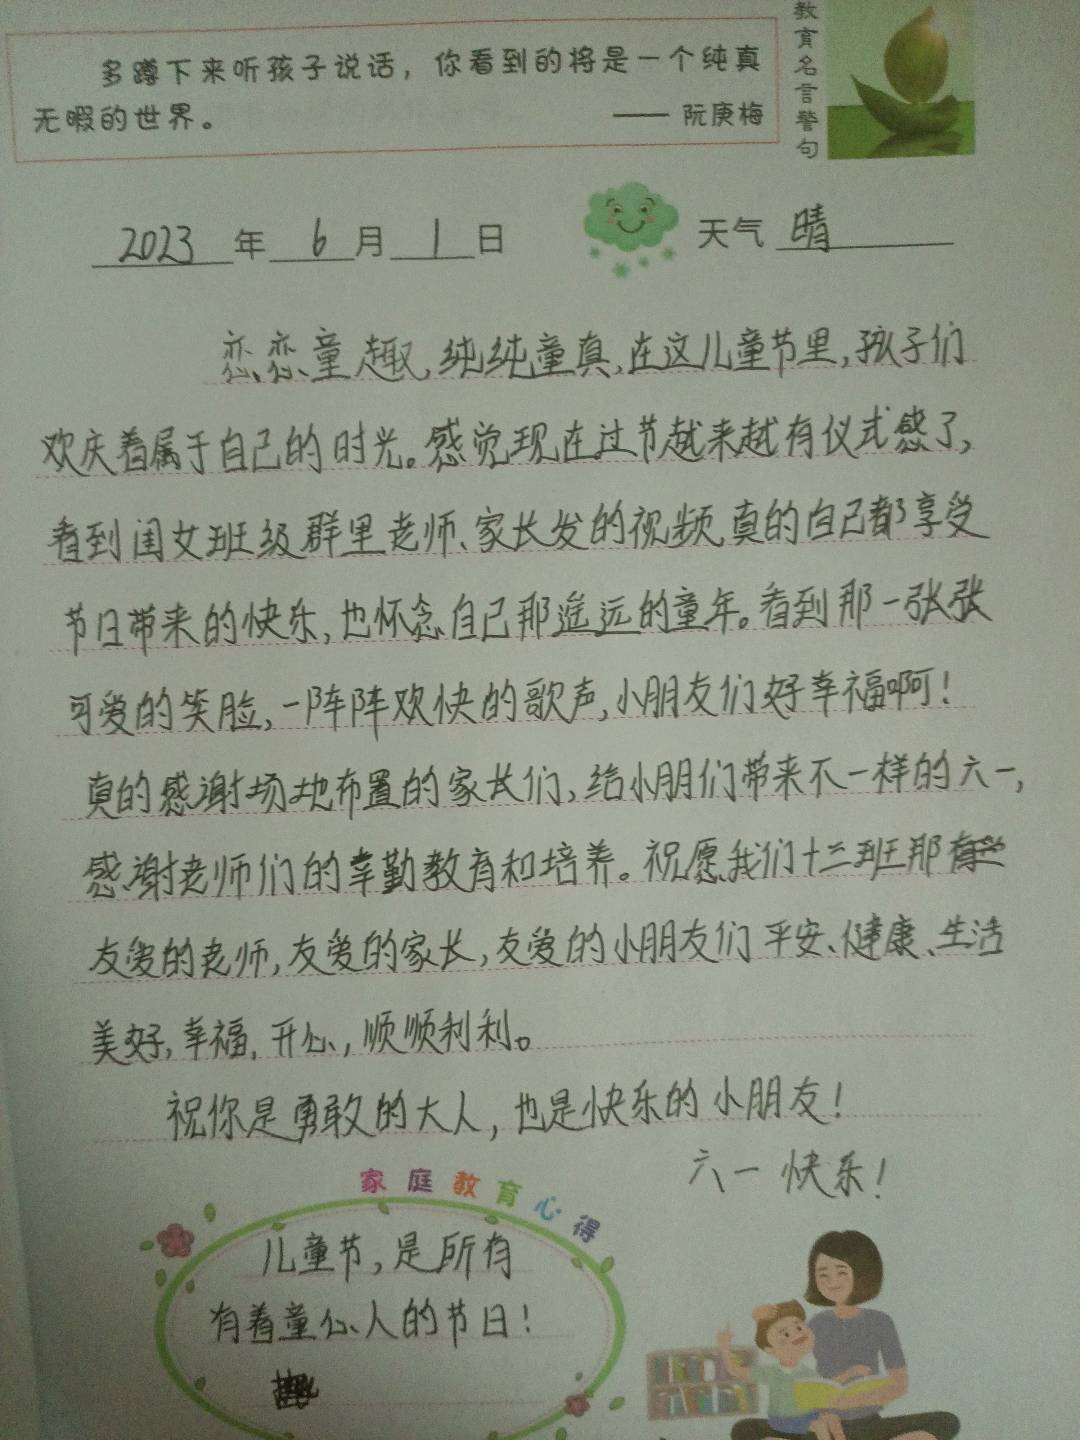 多蹲下来听孩子说话，你看到的将是一个纯真
无暇的世界。
—— 阮庚梅
教育名言警句
2023年6月1日
天气 晴
恋恋童趣,纯纯童真,在这儿童节里,孩子们
欢庆着属于自己的时光。感觉现在过节越来越有仪式感了,
看到闺女班级群里老师、家长发的视频,真的自己都享受
节日带来的快乐,也怀念自己那遥远的童年。看到那一张张
可爱的笑脸,一阵阵欢快的歌声,小朋友们好幸福啊!
真的感谢场地布置的家长们,给小朋们带来不一样的六一,
感谢老师们的辛勤教育和培养。祝愿我们十二班那
友爱的老师,友爱的家长,友爱的小朋友们平安、健康、生活
美好,幸福,开心,顺顺利利。
祝你是勇敢的大人,也是快乐的小朋友!
六一快乐!
家庭教育心得
儿童节,是所有
有着童心人的节日!